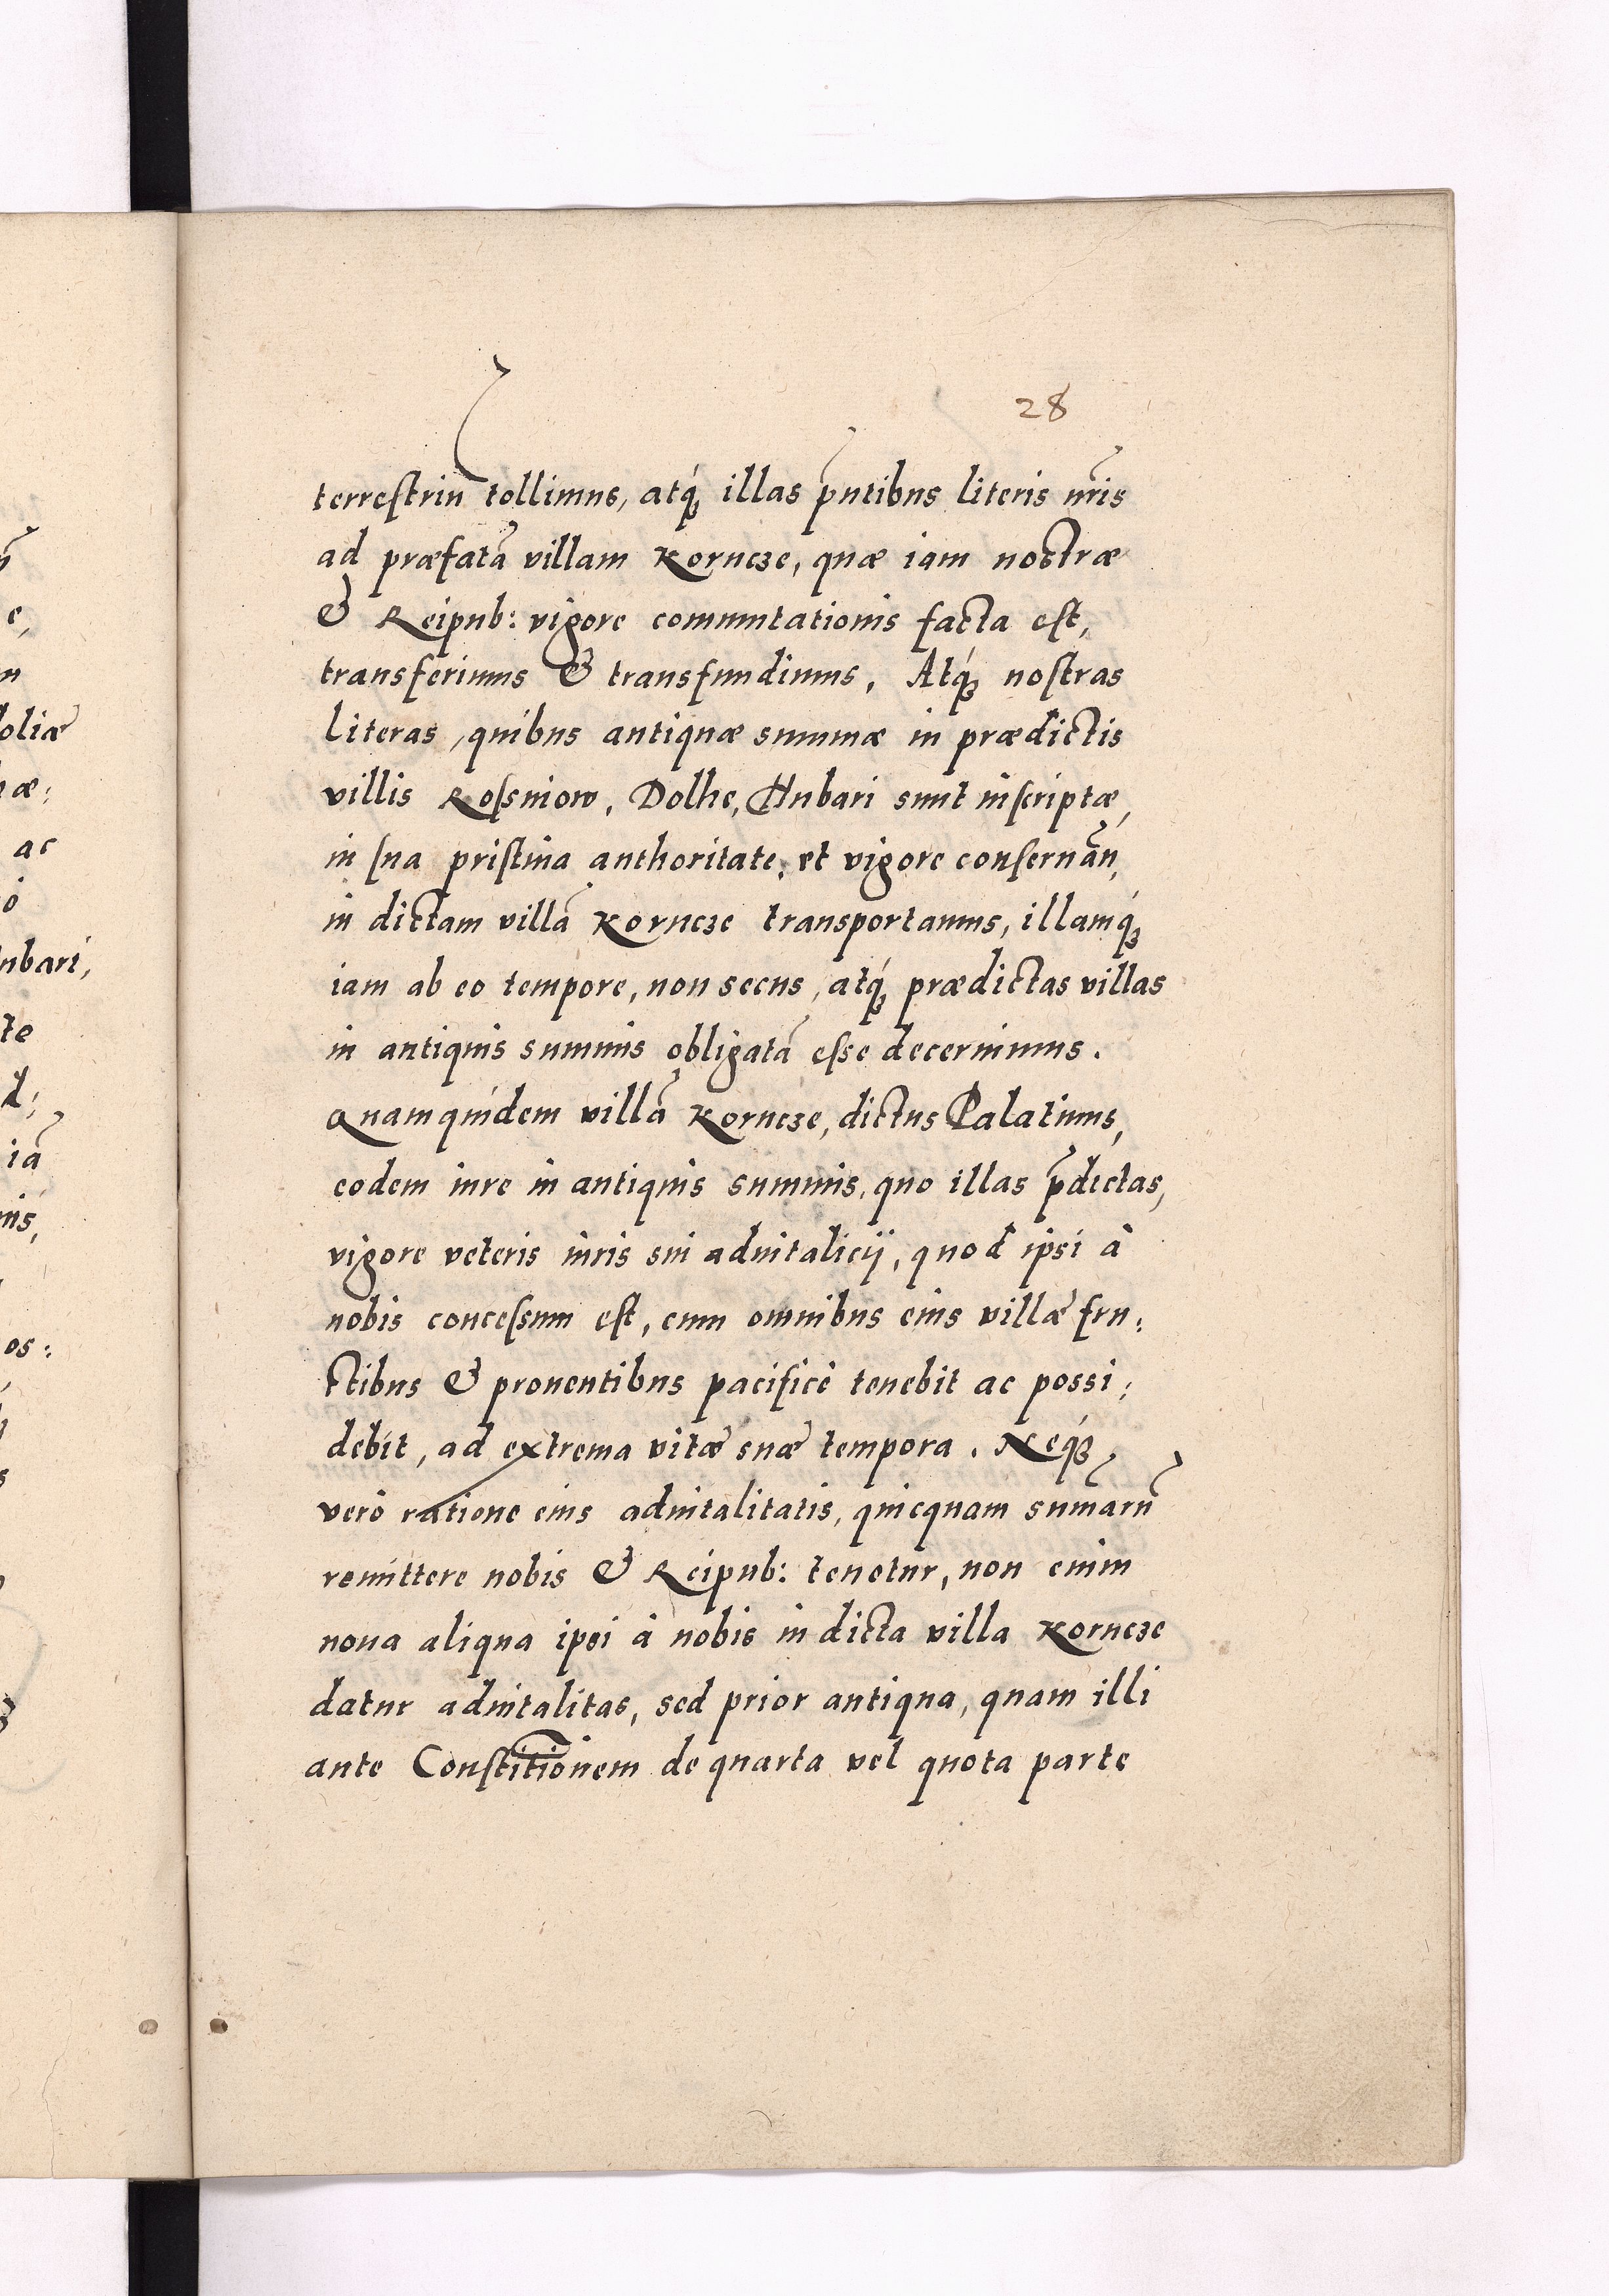 28
terrestriũ tollimus, atq́ꝫ illas p̃ntibus literis nr̃is
ad præfatã villam Korncze, quæ iam nostræ
& Reipub: vigore commutationis facta est,
transferimus & transfundimus. Atq́ꝫ nostras
literas, quibus antiquæ summæ in prædictis
villis Rossniow, Dolhe, Hubari sunt inscriptæ,
in sua pristina authoritate, et vigore conseruãn,
in dictam villã Korncze transportamus, illamq́ꝫ
iam ab eo tempore, non secus, atq́ꝫ prædictas villas
in antiquis summis obligatã esse decernimus.
Quamquidem villã Korncze, dictus Palatinus,
eodem iure in antiquis summis, quo illas p̃dictas,
vigore veteris iuris sui aduitalicij, quod ipsi à
nobis concessum est, cum omnibus eius villæ fru:
ctibus & prouentibus pacificè tenebit ac possi:
debit, ad extrema vitæ suæ tempora. Neq́ꝫ
verò ratione eius aduitalitatis, quicquam sumarũ
remittere nobis & Reipub: tenetur, non enim
noua aliqua ipsi à nobis in dicta villa Korncze
datur aduitalitas, sed prior antiqua, quam illi
ante Constitiõnem de quarta vel quota parte
e,
doliæ
æ:
ac
ò
ubari,
te
d:
iã
nis,
os: